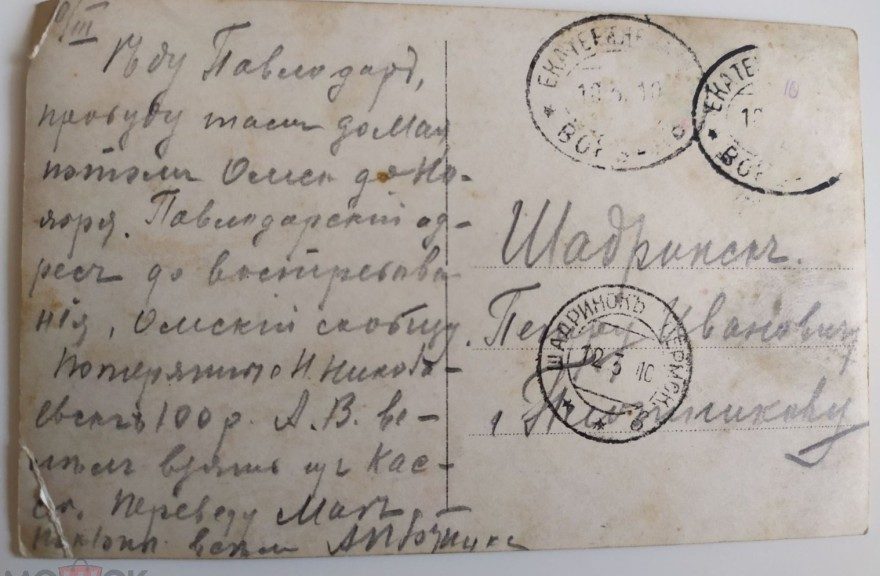 9/III
Ѣду Павлодаръ,
пробуду тамъ до Мая
потомъ Омск до Но-
ября. Павлодарскій ад-
ресъ до востребова-
нія, Омскій сообщу.
Потерялъ Н. Никола-
евскъ 100 р. А. В. ве-
лѣлъ взять изъ Кас-
сы. Переведу Маѣ.
всѣмъ
ЕКАТЕРИН
10.3.10
ВОК
ЕКАТЕ
10
ВОК
10
Шадринскъ.
Петру Ивановичу
ШАДРИНСКЪ ПЕРМСК
12 3 10